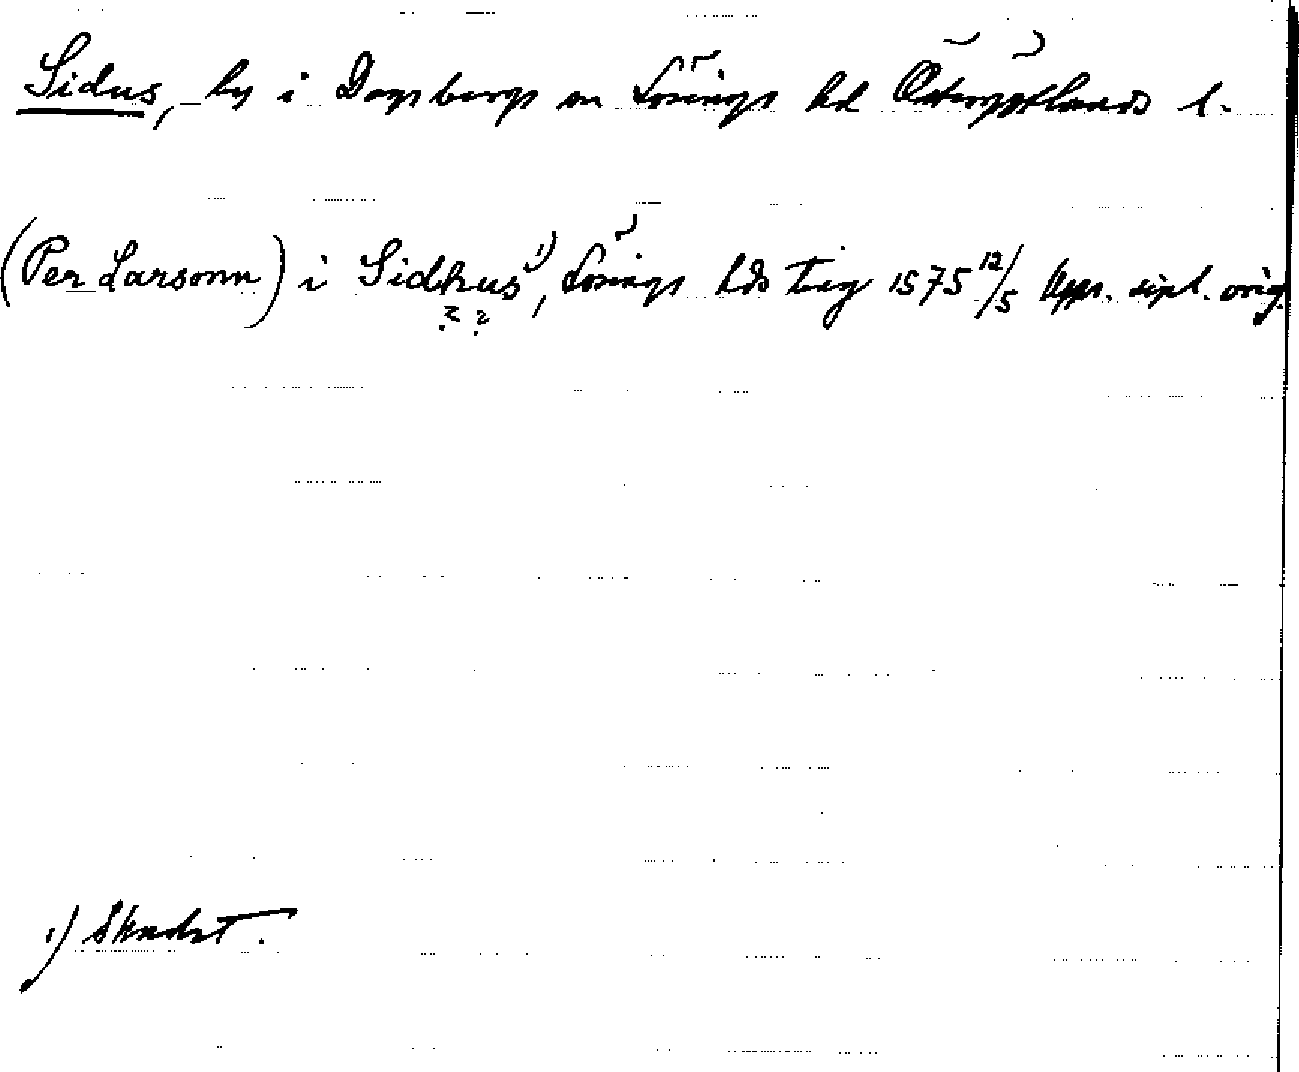 Sidus, by i Dagsbergs sn Lösings hd Östergötlands l.
(Per Larsonn) i Sidhus ¹⁾, Lösings hds ting 1575 12/5 Upps. dipl. orig.
? ?
1) Skadat.